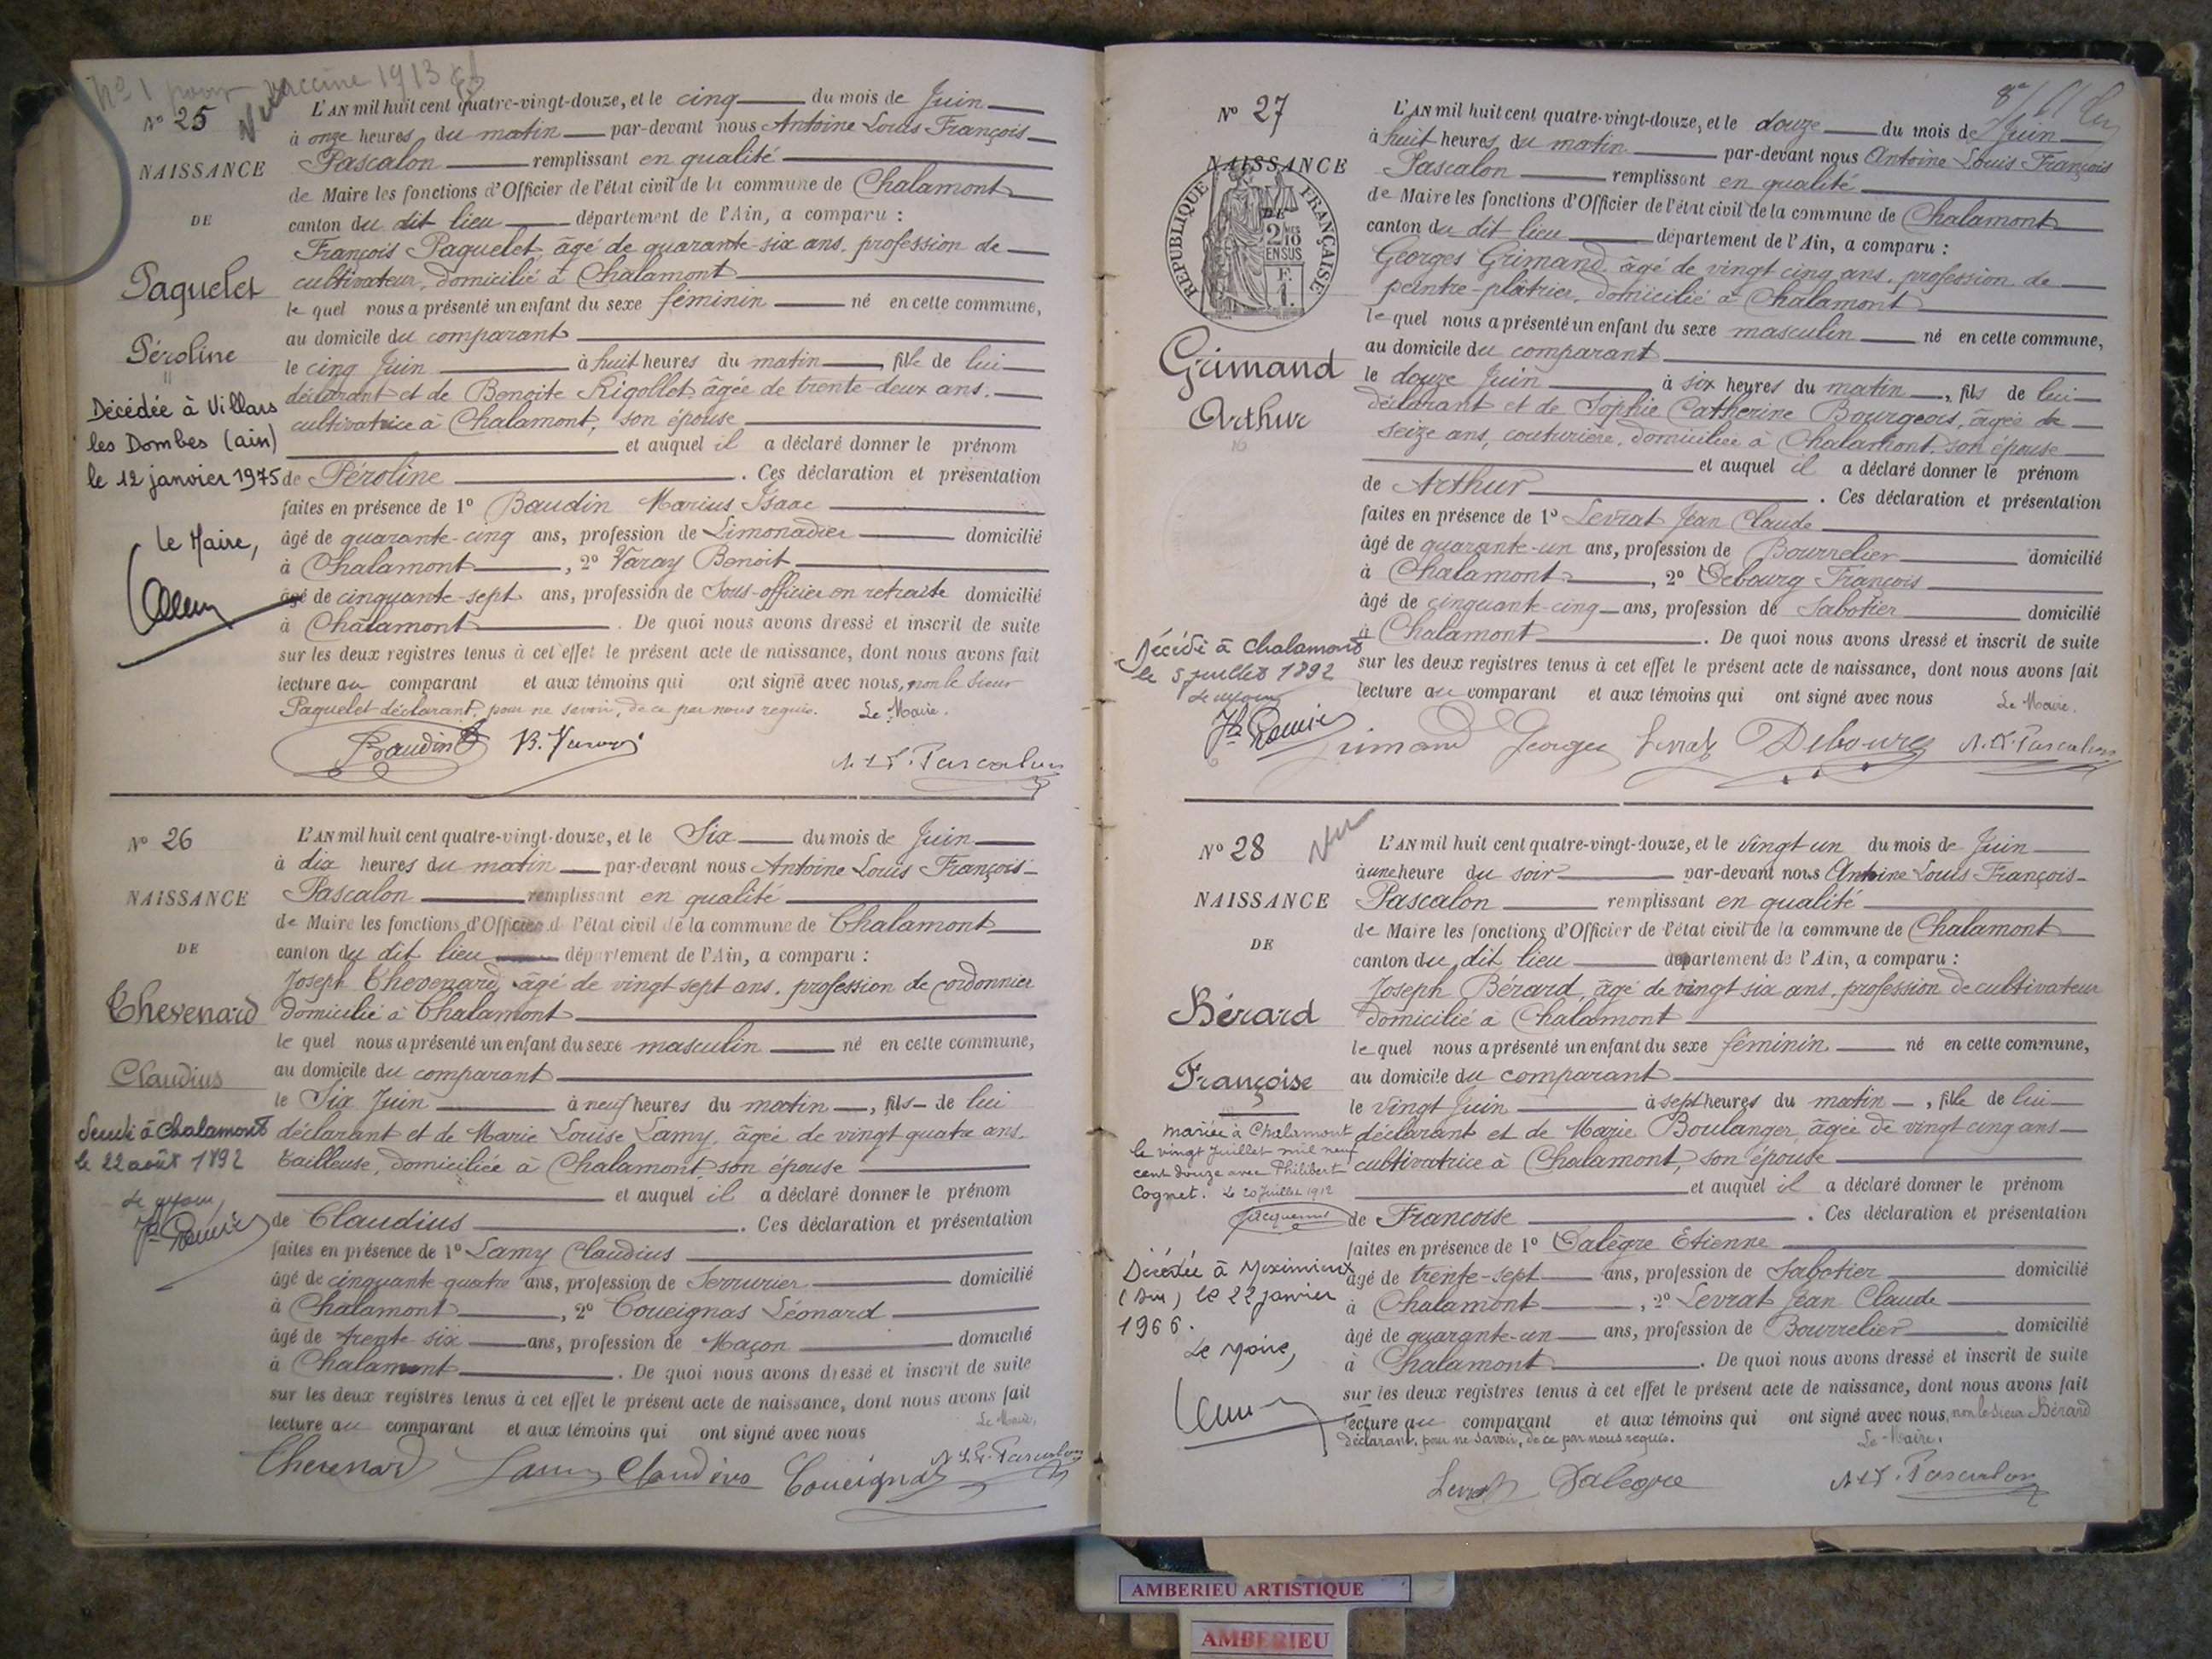 N° 1 pour vaccine 1913
N° 25
Vu
NAISSANCE
DE
Paquelet
Péroline
Décédée à Villars
les Dombes (ain)
le 12 janvier 1975
Le Maire,
L'AN mil huit cent quatre-vingt-douze, et le cinq du mois de Juin
à onze heures du matin par-devant nous Antoine Louis François
Pascalon remplissant en qualité
de Maire les fonctions d'Officier de l'état civil de la commune de Chalamont
canton du dit lieu département de l'Ain, a comparu :
François Paquelet, âgé de quarante-six ans, profession de
cultivateur, domicilié à Chalamont
le quel nous a présenté un enfant du sexe féminin né en cette commune,
au domicile du comparant
le cinq Juin à huit heures du matin, fille de lui
déclarant et de Benoite Rigollet âgée de trente-deux ans.
cultivatrice à Chalamont, son épouse
et auquel il a déclaré donner le prénom
de Péroline. Ces déclaration et présentation
faites en présence de 1° Baudin Marius Isaac
âgé de quarante-cinq ans, profession de Limonadier domicilié
à Chalamont, 2° Varay Benoit
âgé de cinquante-sept ans, profession de Sous-officier en retraite domicilié
à Chalamont. De quoi nous avons dressé et inscrit de suite
sur les deux registres tenus à cet effet le présent acte de naissance, dont nous avons fait
lecture au comparant et aux témoins qui ont signé avec nous, non le sieur
Paquelet déclarant, pour ne savoir, de ce par nous requis. Le Maire.
Baudin B. Varay
A. L. F. Pascalon
N° 26
NAISSANCE
DE
Chevenard
Claudius
Décédé à Chalamont
le 22 août 1892
L'AN mil huit cent quatre-vingt-douze, et le Six du mois de Juin
à dix heures du matin par-devant nous Antoine Louis François
Pascalon remplissant en qualité
de Maire les fonctions d'Officier de l'état civil de la commune de Chalamont
canton du dit lieu département de l'Ain, a comparu :
Joseph Chevenard, âgé de vingt sept ans, profession de cordonnier
domicilié à Chalamont
le quel nous a présenté un enfant du sexe masculin né en cette commune,
au domicile du comparant
le Six Juin à neuf heures du matin, fils de lui
déclarant et de Marie Louise Lamy, âgée de vingt quatre ans.
tailleuse, domiciliée à Chalamont, son épouse
et auquel il a déclaré donner le prénom
de Claudius. Ces déclaration et présentation
faites en présence de 1° Lamy Claudius
âgé de cinquante-quatre ans, profession de Serrurier domicilié
à Chalamont, 2° Coueignas Léonard
âgé de trente-six ans, profession de Maçon domicilié
à Chalamont. De quoi nous avons dressé et inscrit de suite
sur les deux registres tenus à cet effet le présent acte de naissance, dont nous avons fait
lecture au comparant et aux témoins qui ont signé avec nous Le Maire,
Chevenard Lamy Claudius Coueignas A. L. F. Pascalon
N° 27
NAISSANCE
DE
RÉPUBLIQUE FRANÇAISE
2/10 EN SUS
Grimand
Arthur
Décédé à Chalamont
le 5 juillet 1892
L'AN mil huit cent quatre-vingt-douze, et le douze du mois de Juin
à huit heures du matin par-devant nous Antoine Louis François
Pascalon remplissant en qualité
de Maire les fonctions d'Officier de l'état civil de la commune de Chalamont
canton du dit lieu département de l'Ain, a comparu :
Georges Grimand, âgé de vingt cinq ans, profession de
peintre-plâtrier, domicilié à Chalamont
le quel nous a présenté un enfant du sexe masculin né en cette commune,
au domicile du comparant
le douze Juin à six heures du matin, fils de lui
déclarant et de Sophie Catherine Bourgeois, âgée de
seize ans, couturière, domiciliée à Chalamont, son épouse
et auquel il a déclaré donner le prénom
de Arthur. Ces déclaration et présentation
faites en présence de 1° Levrat Jean Claude
âgé de quarante-un ans, profession de Bourrelier domicilié
à Chalamont, 2° Debourg François
âgé de cinquante-cinq ans, profession de Sabotier domicilié
à Chalamont. De quoi nous avons dressé et inscrit de suite
sur les deux registres tenus à cet effet le présent acte de naissance, dont nous avons fait
lecture au comparant et aux témoins qui ont signé avec nous Le Maire.
Grimand Georges Levrat Debourg A. L. F. Pascalon
N° 28
Vu
NAISSANCE
DE
Bérard
Françoise
mariée à Chalamont
le vingt Juillet mil neuf
cent douze avec Philibert
Cognet. Le 20 Juillet 1912
Décédée à Meximieux
(Ain) le 22 janvier
1966.
Le Maire,
L'AN mil huit cent quatre-vingt-douze, et le vingt-un du mois de Juin
à une heure du soir par-devant nous Antoine Louis François
Pascalon remplissant en qualité
de Maire les fonctions d'Officier de l'état civil de la commune de Chalamont
canton du dit lieu département de l'Ain, a comparu :
Joseph Bérard, âgé de vingt six ans, profession de cultivateur
domicilié à Chalamont
le quel nous a présenté un enfant du sexe féminin né en cette commune,
au domicile du comparant
le vingt Juin à sept heures du matin, fille de lui
déclarant et de Marie Boulanger, âgée de vingt cinq ans
cultivatrice à Chalamont, son épouse
et auquel il a déclaré donner le prénom
de Françoise. Ces déclaration et présentation
faites en présence de 1° Dalègre Etienne
âgé de trente-sept ans, profession de Sabotier domicilié
à Chalamont, 2° Levrat Jean Claude
âgé de quarante-un ans, profession de Bourrelier domicilié
à Chalamont. De quoi nous avons dressé et inscrit de suite
sur les deux registres tenus à cet effet le présent acte de naissance, dont nous avons fait
lecture au comparant et aux témoins qui ont signé avec nous, non le sieur Bérard
déclarant, pour ne savoir, de ce par nous requis. Le Maire.
Levrat Dalegre A. L. F. Pascalon
AMBERIEU ARTISTIQUE
AMBERIEU